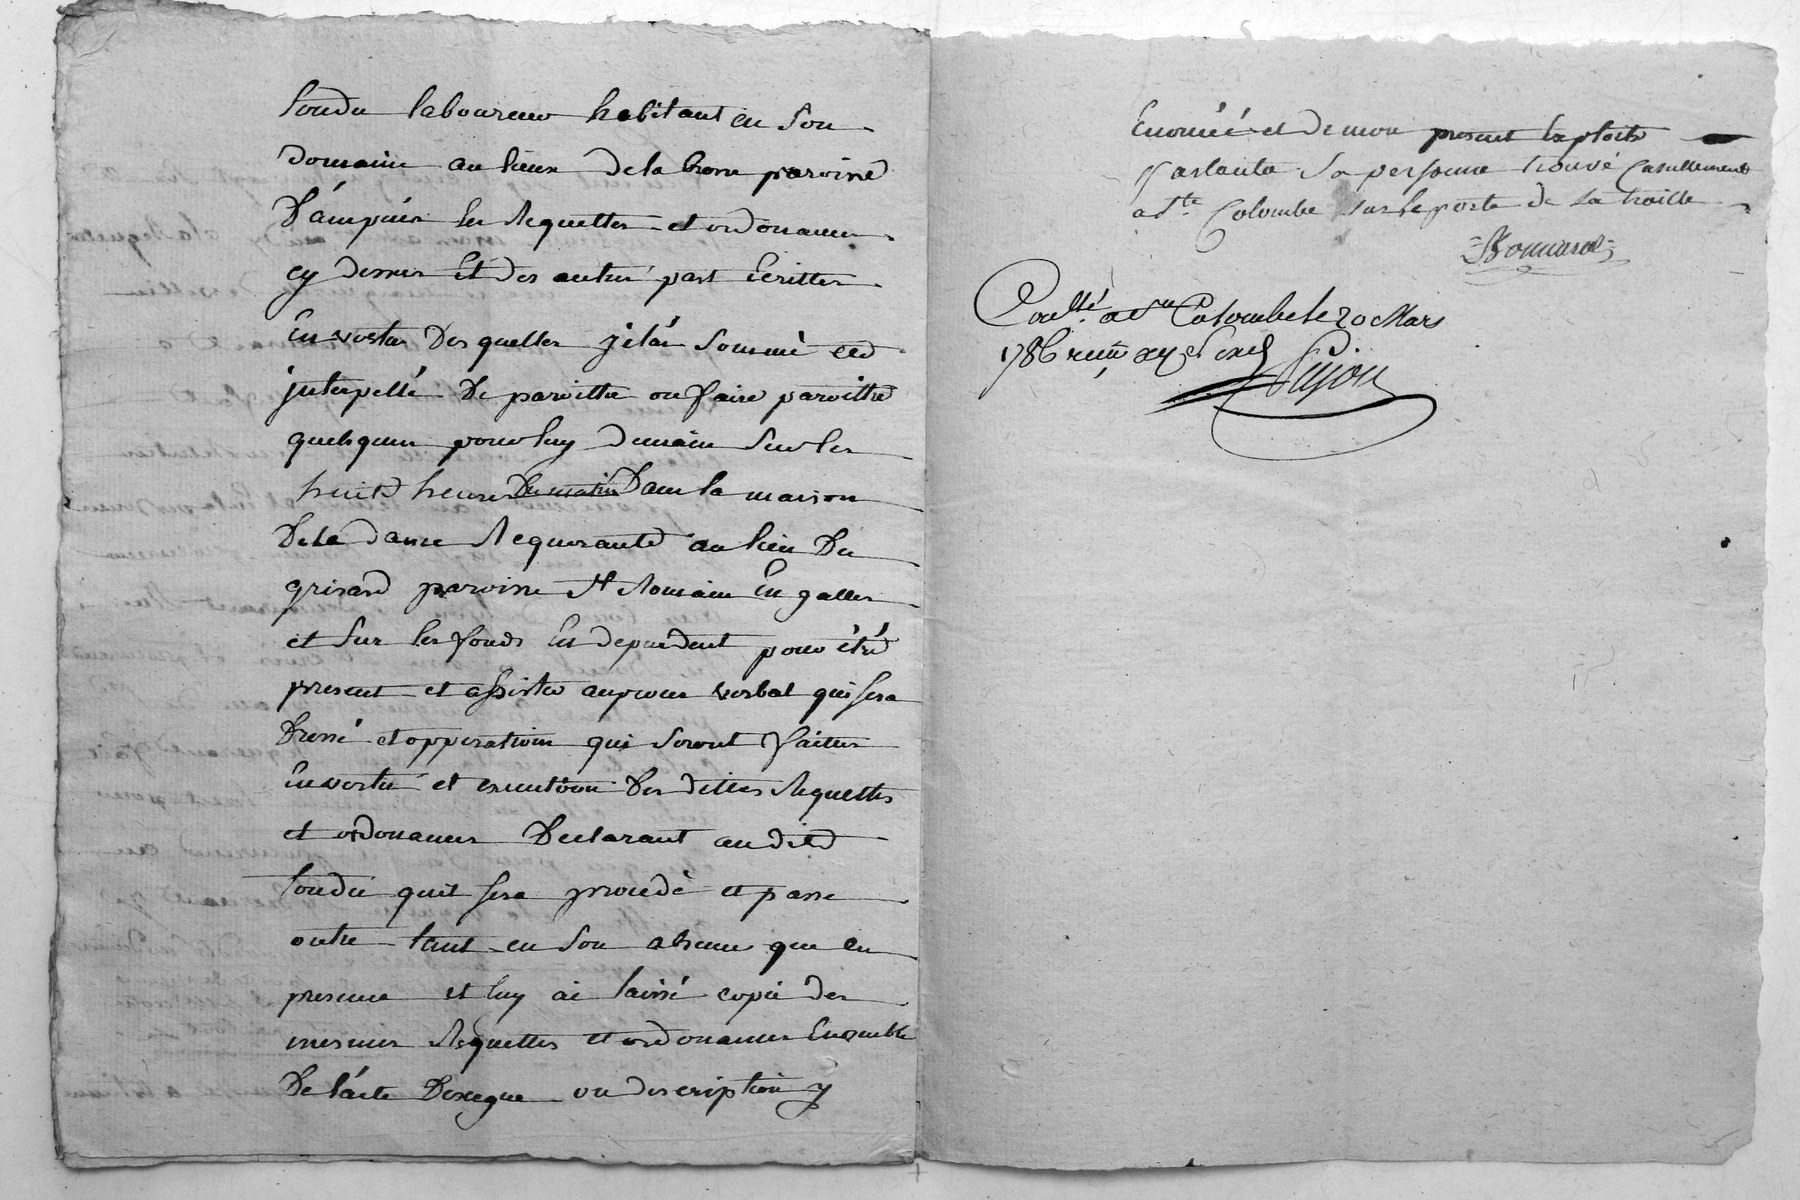 Condu laboureur habitant en son
domaine au lieux de la brone paroisse
D'ampuis les Requettes et ordonances
cy dessus Et des autres part Ecrittes
En vertu Des quelles jelái sommé et
jnterpellé De paroittre ou faire paroittre
quelequn pour luy demain sur les
huit heures Du matin Dans la maison
De la dame Requerante au lieu Du
grisard paroisse St Romain En galles
et sur les fonds En dependent pour être
present et assister au proces verbal qui sera
Dressé et opperations qui seront faittes
En vertu et execution Des dittes Requettes
et ordonances Declarant au dit
Condu quil sera procedé et passé
outre tant en son absence que en
presence et luy ai laissé copie des
mesmes Requettes et ordonances Ensemble
De lácte ou description y
Enoncéé et de mon present Exploits
parlanta sa personne trouvé Casullement
a Ste Colombe sur le porte de la traille
Bonnard
Conllé a Ste Colombe le 20 Mars
1786 Pujon